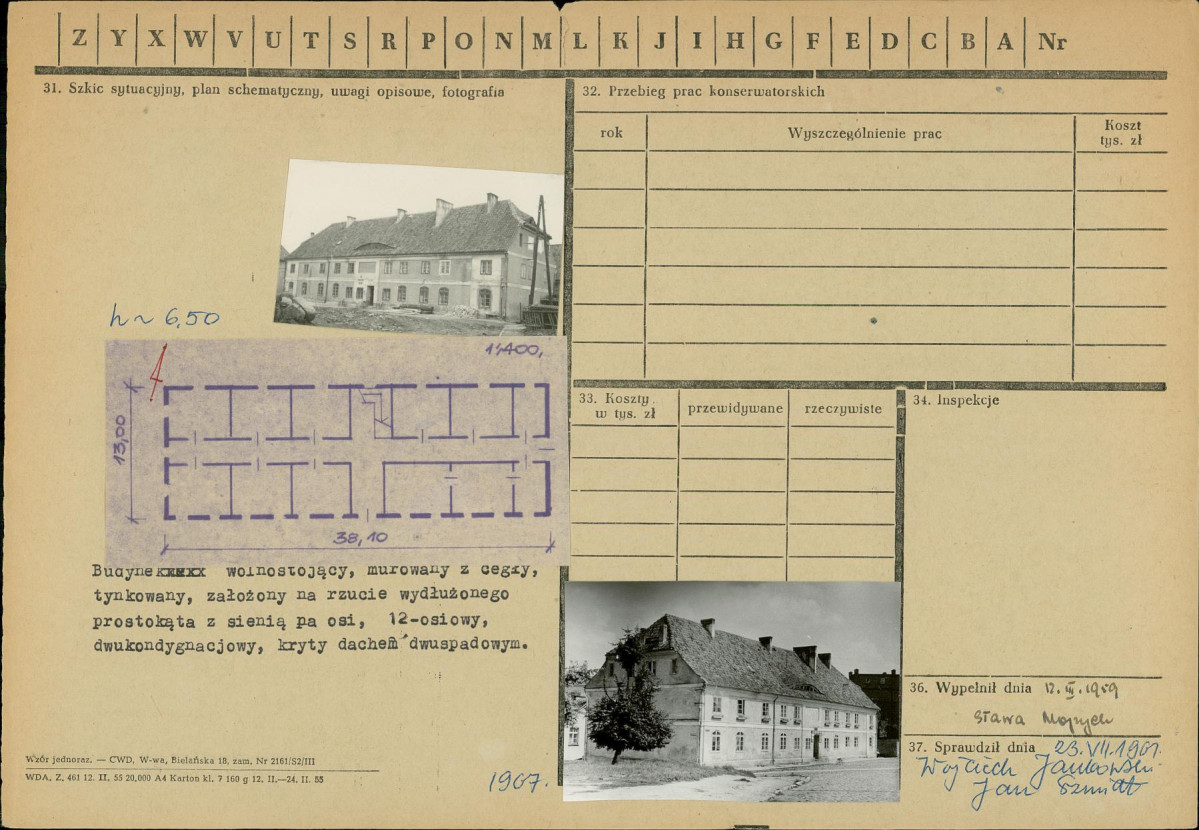 Z Y X W V U T S R P O N M L K J I H G F E D C B A Nr
31. Szkic sytuacyjny, plan schematyczny, uwagi opisowe, fotografia
h ~ 6,50
1:400,
13,00
38,10
Budynekxxxx wolnostojący, murowany z cegły,
tynkowany, założony na rzucie wydłużonego
prostokąta z sienią na osi, 12-osiowy,
dwukondygnacjowy, kryty dachem dwuspadowym.
Wzór jednoraz. — CWD, W-wa, Bielańska 18, zam. Nr 2161/S2/III
WDA, Z, 461 12. II. 55 20,000 A4 Karton kl. 7 160 g 12. II.—24. II. 55
1967.
32. Przebieg prac konserwatorskich
rok Wyszczególnienie prac Koszt tys. zł
33. Koszty w tys. zł przewidywane rzeczywiste
34. Inspekcje
36. Wypełnił dnia 12. III. 1959
Sława
37. Sprawdził dnia 23. VII. 1967.
Wojciech Jankowski
Jan Szmidt